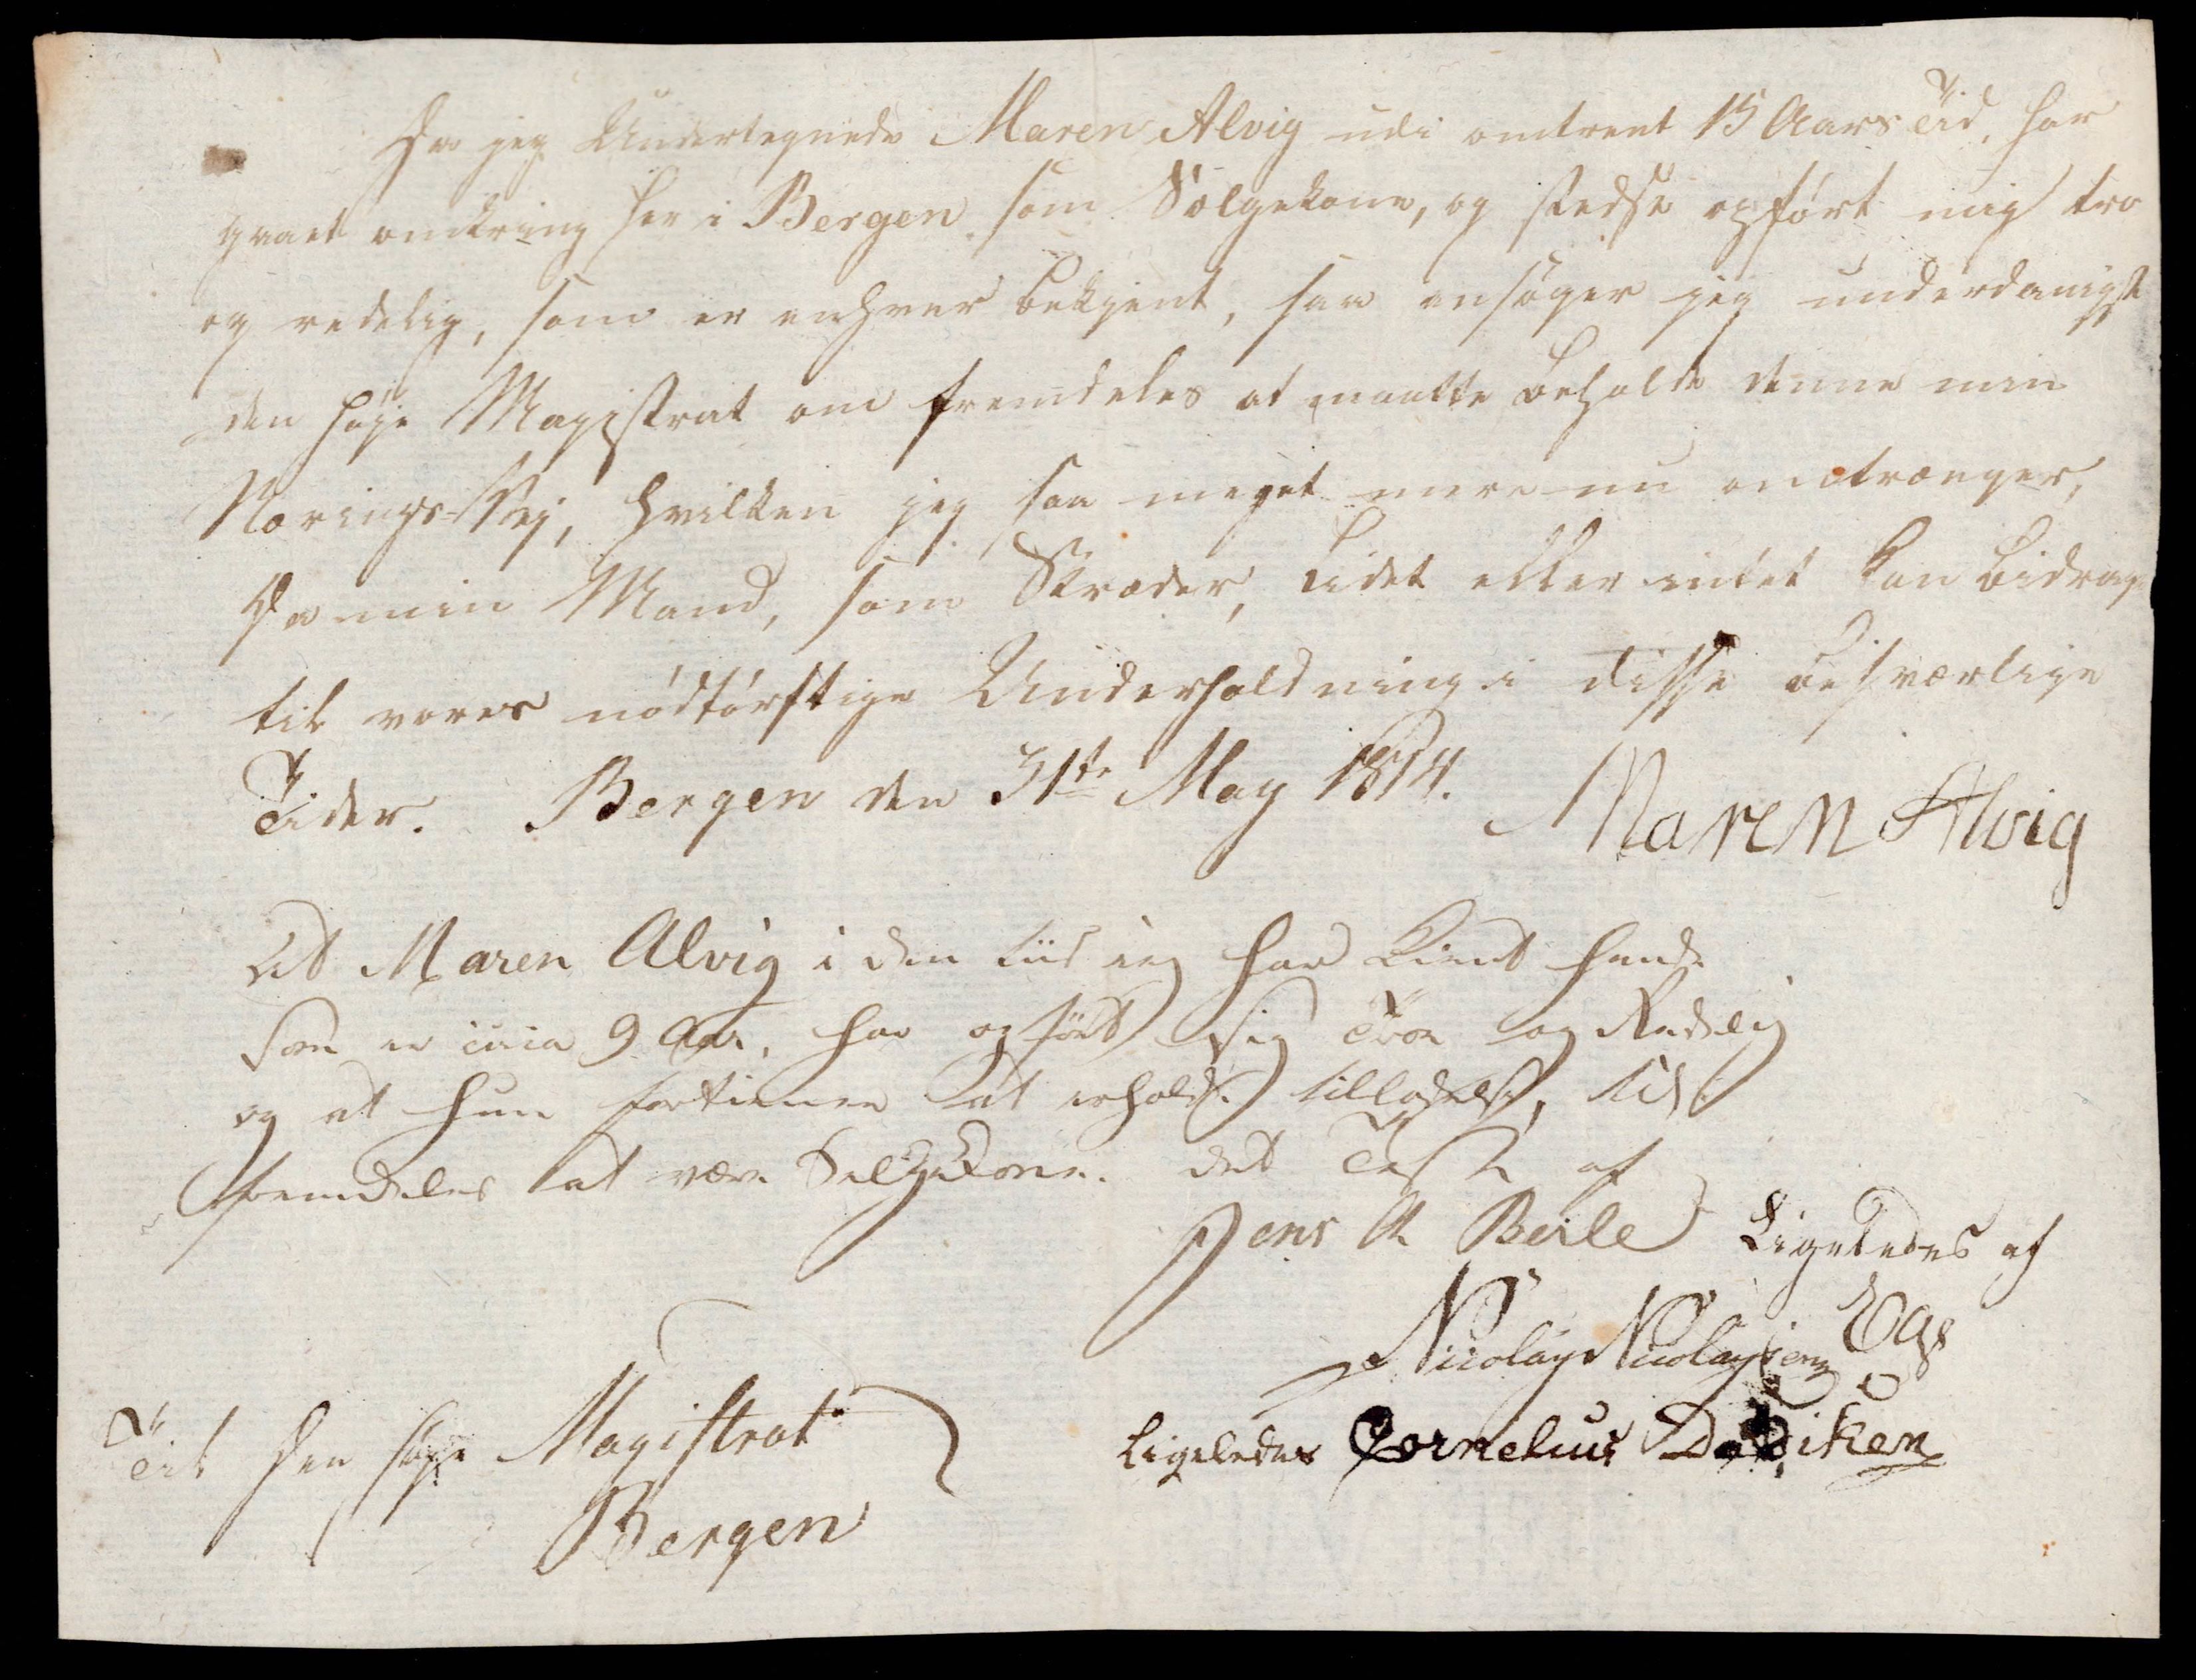 Da jeg Undertegnede Maren Alvig udi omtrent 15 Aars Tid, har
gaaet omkring her i Bergen som Sölgekone, og stedse opfört mig tro
og redelig, som er enhver bekjent, saa ansöger jeg underdanigst
den höje Magistrat om fremdeles at maatte beholde denne min
Nærings-Vej, hvilken jeg saa meget mere nu omtrænger,
da min Mand, som Skræder, lidet eller intet kan bidrage
til vores nödtörftige Underholdning i disse besværlige
Tider. Bergen den 31te May 1814. Maren Alvig
At Maren Alvig i den tiid ieg har kient hende
som er circa 9 Aar, har opfört sig Troe og Redelig
og at hun fortiener at erholde tilladelse, til
fremdeles at være Selgekone. det Test af
Jens A Beile Ligeledes af
Nicolay Nicolaysen
Ligeledes Cornelius
Til den höje Magistrat
Bergen